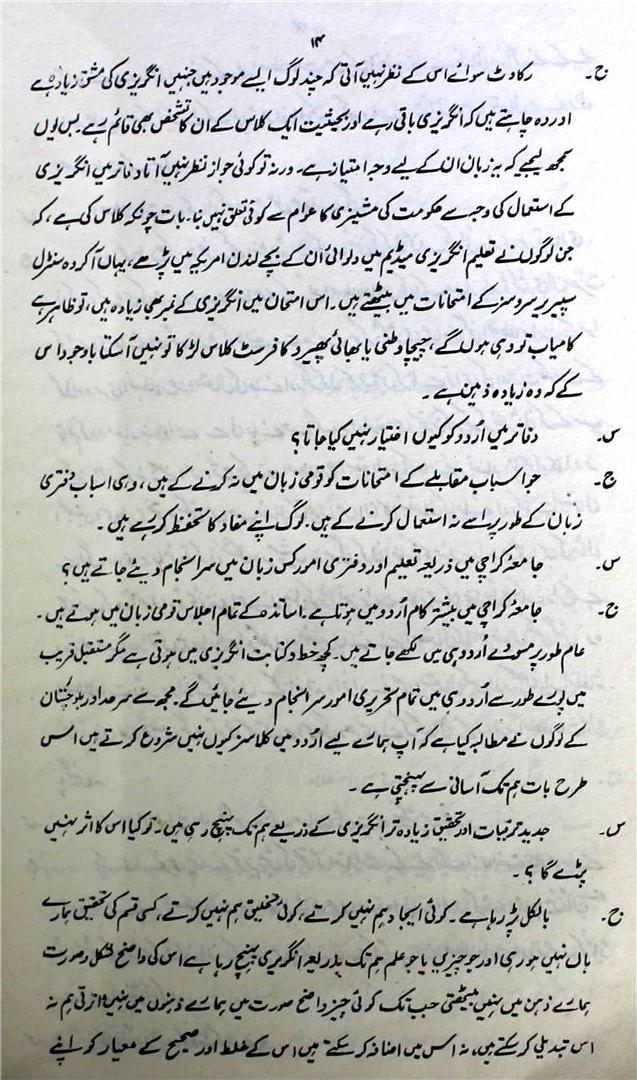 ۱۴
ج۔ رکاوٹ سوائے اس کے نظر نہیں آتی کہ چند لوگ ایسے موجود ہیں جنہیں انگریزی کی مشق زیادہ ہے
اور وہ چاہتے ہیں کہ انگریزی باقی رہے اور بحیثیت ایک کلاس کے ان کا تشخص بھی قائم رہے۔ بس یوں
سمجھ لیجیے کہ یہ زبان ان کے لیے وجہ امتیاز ہے۔ ورنہ تو کوئی جواز نظر نہیں آتا دفاتر میں انگریزی
کے استعمال کی وجہ سے حکومت کی مشینری کا عوام سے کوئی تعلق نہیں بنا۔ بات چونکہ کلاس کی ہے، کہ
جن لوگوں نے تعلیم انگریزی میڈیم میں دلوائی اُن کے بچے لندن امریکہ میں پڑھے، یہاں آکر وہ سنٹرل
سپیریر سروسز کے امتحانات میں بیٹھتے ہیں۔ اس امتحان میں انگریزی کے نمبر بھی زیادہ ہیں، تو ظاہر ہے
کامیاب تو وہی ہوں گے، چیچا وطنی یا بھائی پھیرو کا فرسٹ کلاس لڑکا تو نہیں آ سکتا باوجود اس
کے کہ وہ زیادہ ذہین ہے۔
س۔ دفاتر میں اُردو کو کیوں اختیار نہیں کیا جاتا؟
ج۔ جو اسباب مقابلے کے امتحانات کو قومی زبان میں نہ کرنے کے ہیں، وہی اسباب دفتری
زبان کے طور پر اسے نہ استعمال کرنے کے ہیں۔ لوگ اپنے مفاد کا تحفظ کر رہے ہیں۔
س۔ جامعۂ کراچی میں ذریعہ تعلیم اور دفتری امور کس زبان میں سرانجام دیئے جاتے ہیں؟
ج۔ جامعۂ کراچی میں بیشتر کام اُردو میں ہوتا ہے۔ اساتذہ کے تمام اجلاس قومی زبان میں ہوتے ہیں۔
عام طور پر مسودے اُردو ہی میں لکھے جاتے ہیں۔ کچھ خط و کتابت انگریزی میں ہوتی ہے مگر مستقبل قریب
میں پورے طور سے اُردو ہی میں تمام تحریری امور سرانجام دیئے جائیں گے۔ مجھ سے سرحد اور بلوچستان
کے لوگوں نے مطالبہ کیا ہے کہ آپ ہمارے لیے اُردو میں کلاسز کیوں نہیں شروع کرتے ہیں اس
طرح بات ہم تک آسانی سے پہنچتی ہے۔
س۔ جدید ترقیات اور تحقیق زیادہ تر انگریزی کے ذریعے ہم تک پہنچ رہی ہیں۔ تو کیا اس کا اثر نہیں
پڑے گا؟۔
ج۔ بالکل پڑ رہا ہے۔ کوئی ایجاد ہم نہیں کرتے، کوئی تحقیق ہم نہیں کرتے، کسی قسم کی تحقیق ہمارے
ہاں نہیں ہو رہی اور جو چیزیں یا جو علم ہم تک بذریعہ انگریزی پہنچ رہا ہے اس کی واضح شکل و صورت
ہمارے ذہن میں نہیں بیٹھتی جب تک کوئی چیز واضح صورت میں ہمارے ذہنوں میں نہیں اترتی ہم نہ
اس تبدیلی کر سکتے ہیں، نہ اس میں اضافہ کر سکتے ہیں اس کے غلط اور صحیح کے معیار کو اپنے